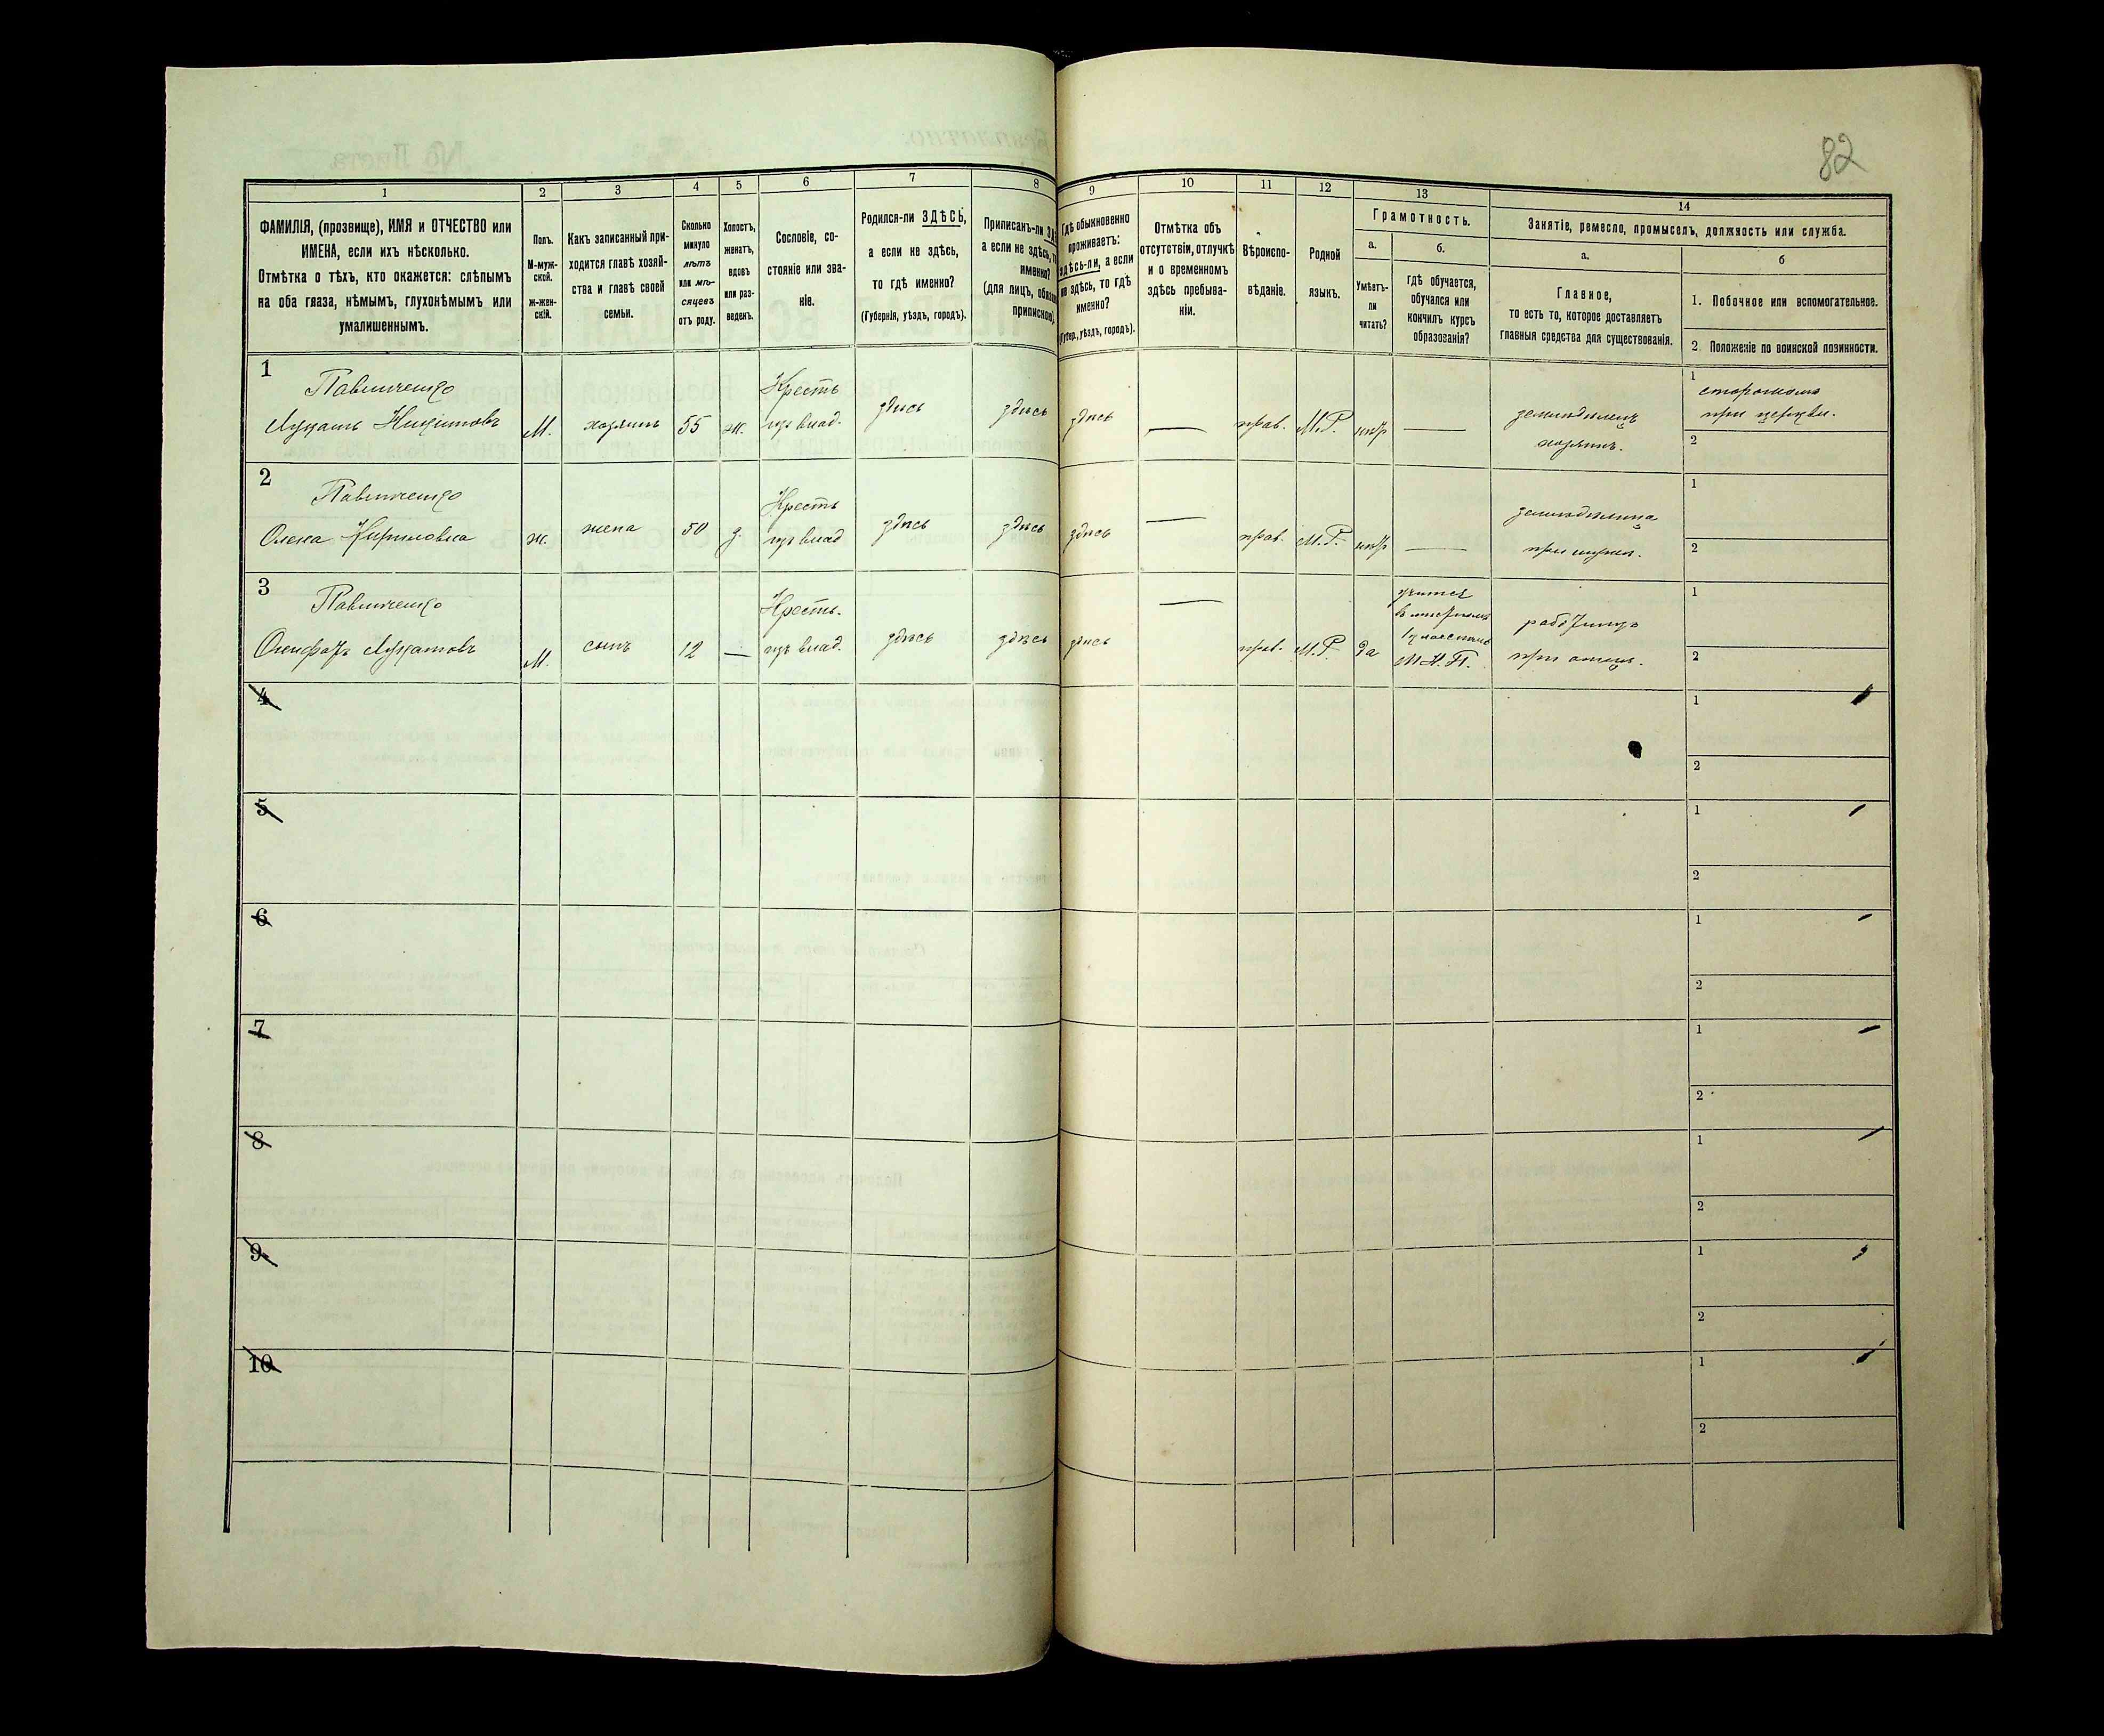 82
1
2
3
4
5
6
7
8
9
10
11
12
13
14
ФАМИЛІЯ, (прозвище), ИМЯ и ОТЧЕСТВО или
ИМЕНА, если ихъ нѣсколько.
Отмѣтка о тѣхъ, кто окажется: слѣпымъ
на оба глаза, нѣмымъ, глухонѣмымъ или
умалишеннымъ.
Полъ.
М-муж-
ской.
ж-жен-
скій.
Какъ записанный при-
ходится главѣ хозяй-
ства и главѣ своей
семьи.
Сколько
минуло
лѣтъ
или мѣ-
сяцевъ
отъ роду.
Холостъ,
женатъ,
вдовъ
или раз-
веденъ.
Сословіе, со-
стояніе или зва-
ніе.
Родился-ли ЗДѢСЬ,
а если не здѣсь,
то гдѣ именно?
(Губернія, уѣздъ, городъ).
Приписанъ-ли
а если не здѣсь,
именно?
(для лицъ,
припискою)
Гдѣ обыкновенно
проживаетъ:
здѣсь-ли, а если
не здѣсь, то гдѣ
именно?
(Губер., уѣздъ, городъ).
Отмѣтка объ
отсутствіи, отлучкѣ
и о временномъ
здѣсь пребыва-
ніи.
Вѣроиспо-
вѣданіе.
Родной
языкъ.
Грамотность.
а.
Умѣетъ-
ли
читать?
б.
Гдѣ обучается,
обучался или
кончилъ курсъ
образованія?
Занятіе, ремесло, промыселъ, должность или служба.
а.
Главное,
то есть то, которое доставляетъ
главныя средства для существованія.
б
1. Побочное или вспомогательное.
2. Положеніе по воинской повинности.
1
Павличенко
Лукашъ Никитовъ
М.
хозяинъ
55
ж.
Кресть
изъ влад.
здѣсь
здѣсь
здѣсь
прав.
М.Р.
нѣтъ
земледѣлецъ
хозяинъ.
1
сторожомъ
при церкви.
2
2
Павличенко
Олена Кириловна
ж.
жена
50
з.
Кресть
изъ влад
здѣсь
здѣсь
здѣсь
прав.
М.Р.
нѣтъ
земледѣлица
при мужѣ.
1
2
3
Павличенко
Лукашовъ
М.
сынъ
12
Кресть.
изъ влад.
здѣсь
здѣсь
здѣсь
прав.
М.Р.
да
учится
М.Н.П.
при отцѣ.
1
2
4
1
2
5
1
2
6
1
2
7
1
2
8
1
2
9
1
2
10
1
2